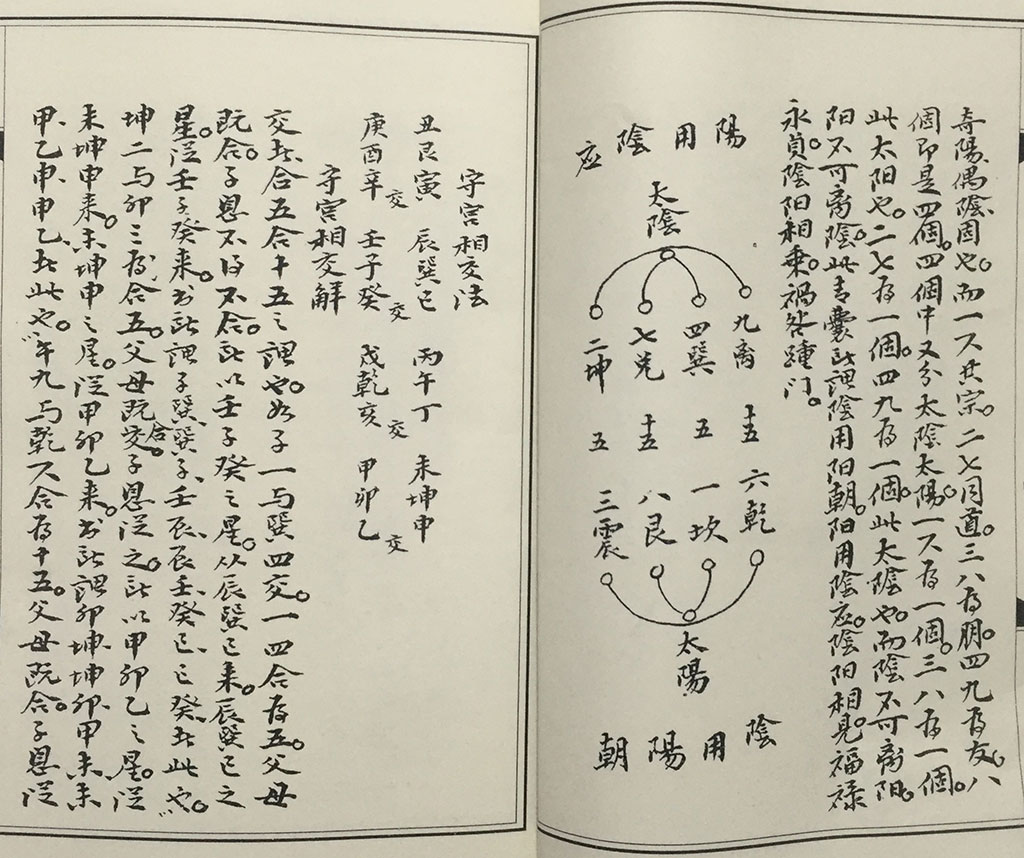 奇陽偶陰固也。而一六共宗。二七同道。三八为朋。四九为友。八
個即是四個。四個中又分太陰太陽。一六为一個。三八为一個。
此太阳也。二七为一個。四九为一個。此太陰也。而陰不可离阳。
阳不可离陰。此青囊所謂陰用阳朝。阳用陰应。陰阳相見。福禄
永貞。陰阳相乘。禍咎踵门。
陽用陰应
太陰
九离 四巽 七兑 二坤
十五 五 十五 五
六乾 一坎 八艮 三震
太陽
陰用陽朝
守宫相交法
丑艮寅 辰巽巳 丙午丁 未坤申
庚酉辛交 壬子癸交 戌乾亥交 甲卯乙交
守宫相交解
交者合五合十五之謂也。如子一与巽四交。一四合为五。父母
既合。子息不得不合。所以壬子癸之星。从辰巽巳来。辰巽巳之
星。从壬子癸来。書所謂子巽巽子、壬辰辰壬、癸巳巳癸、者此也。
坤二与卯三为合五。父母既交合。子息从之。所以甲卯乙之星。从
未坤申来。未坤申之星。从甲卯乙来。書所謂卯坤坤卯、甲未未
甲、乙申、申乙、者此也。午九与乾六合为十五。父母既合。子息从